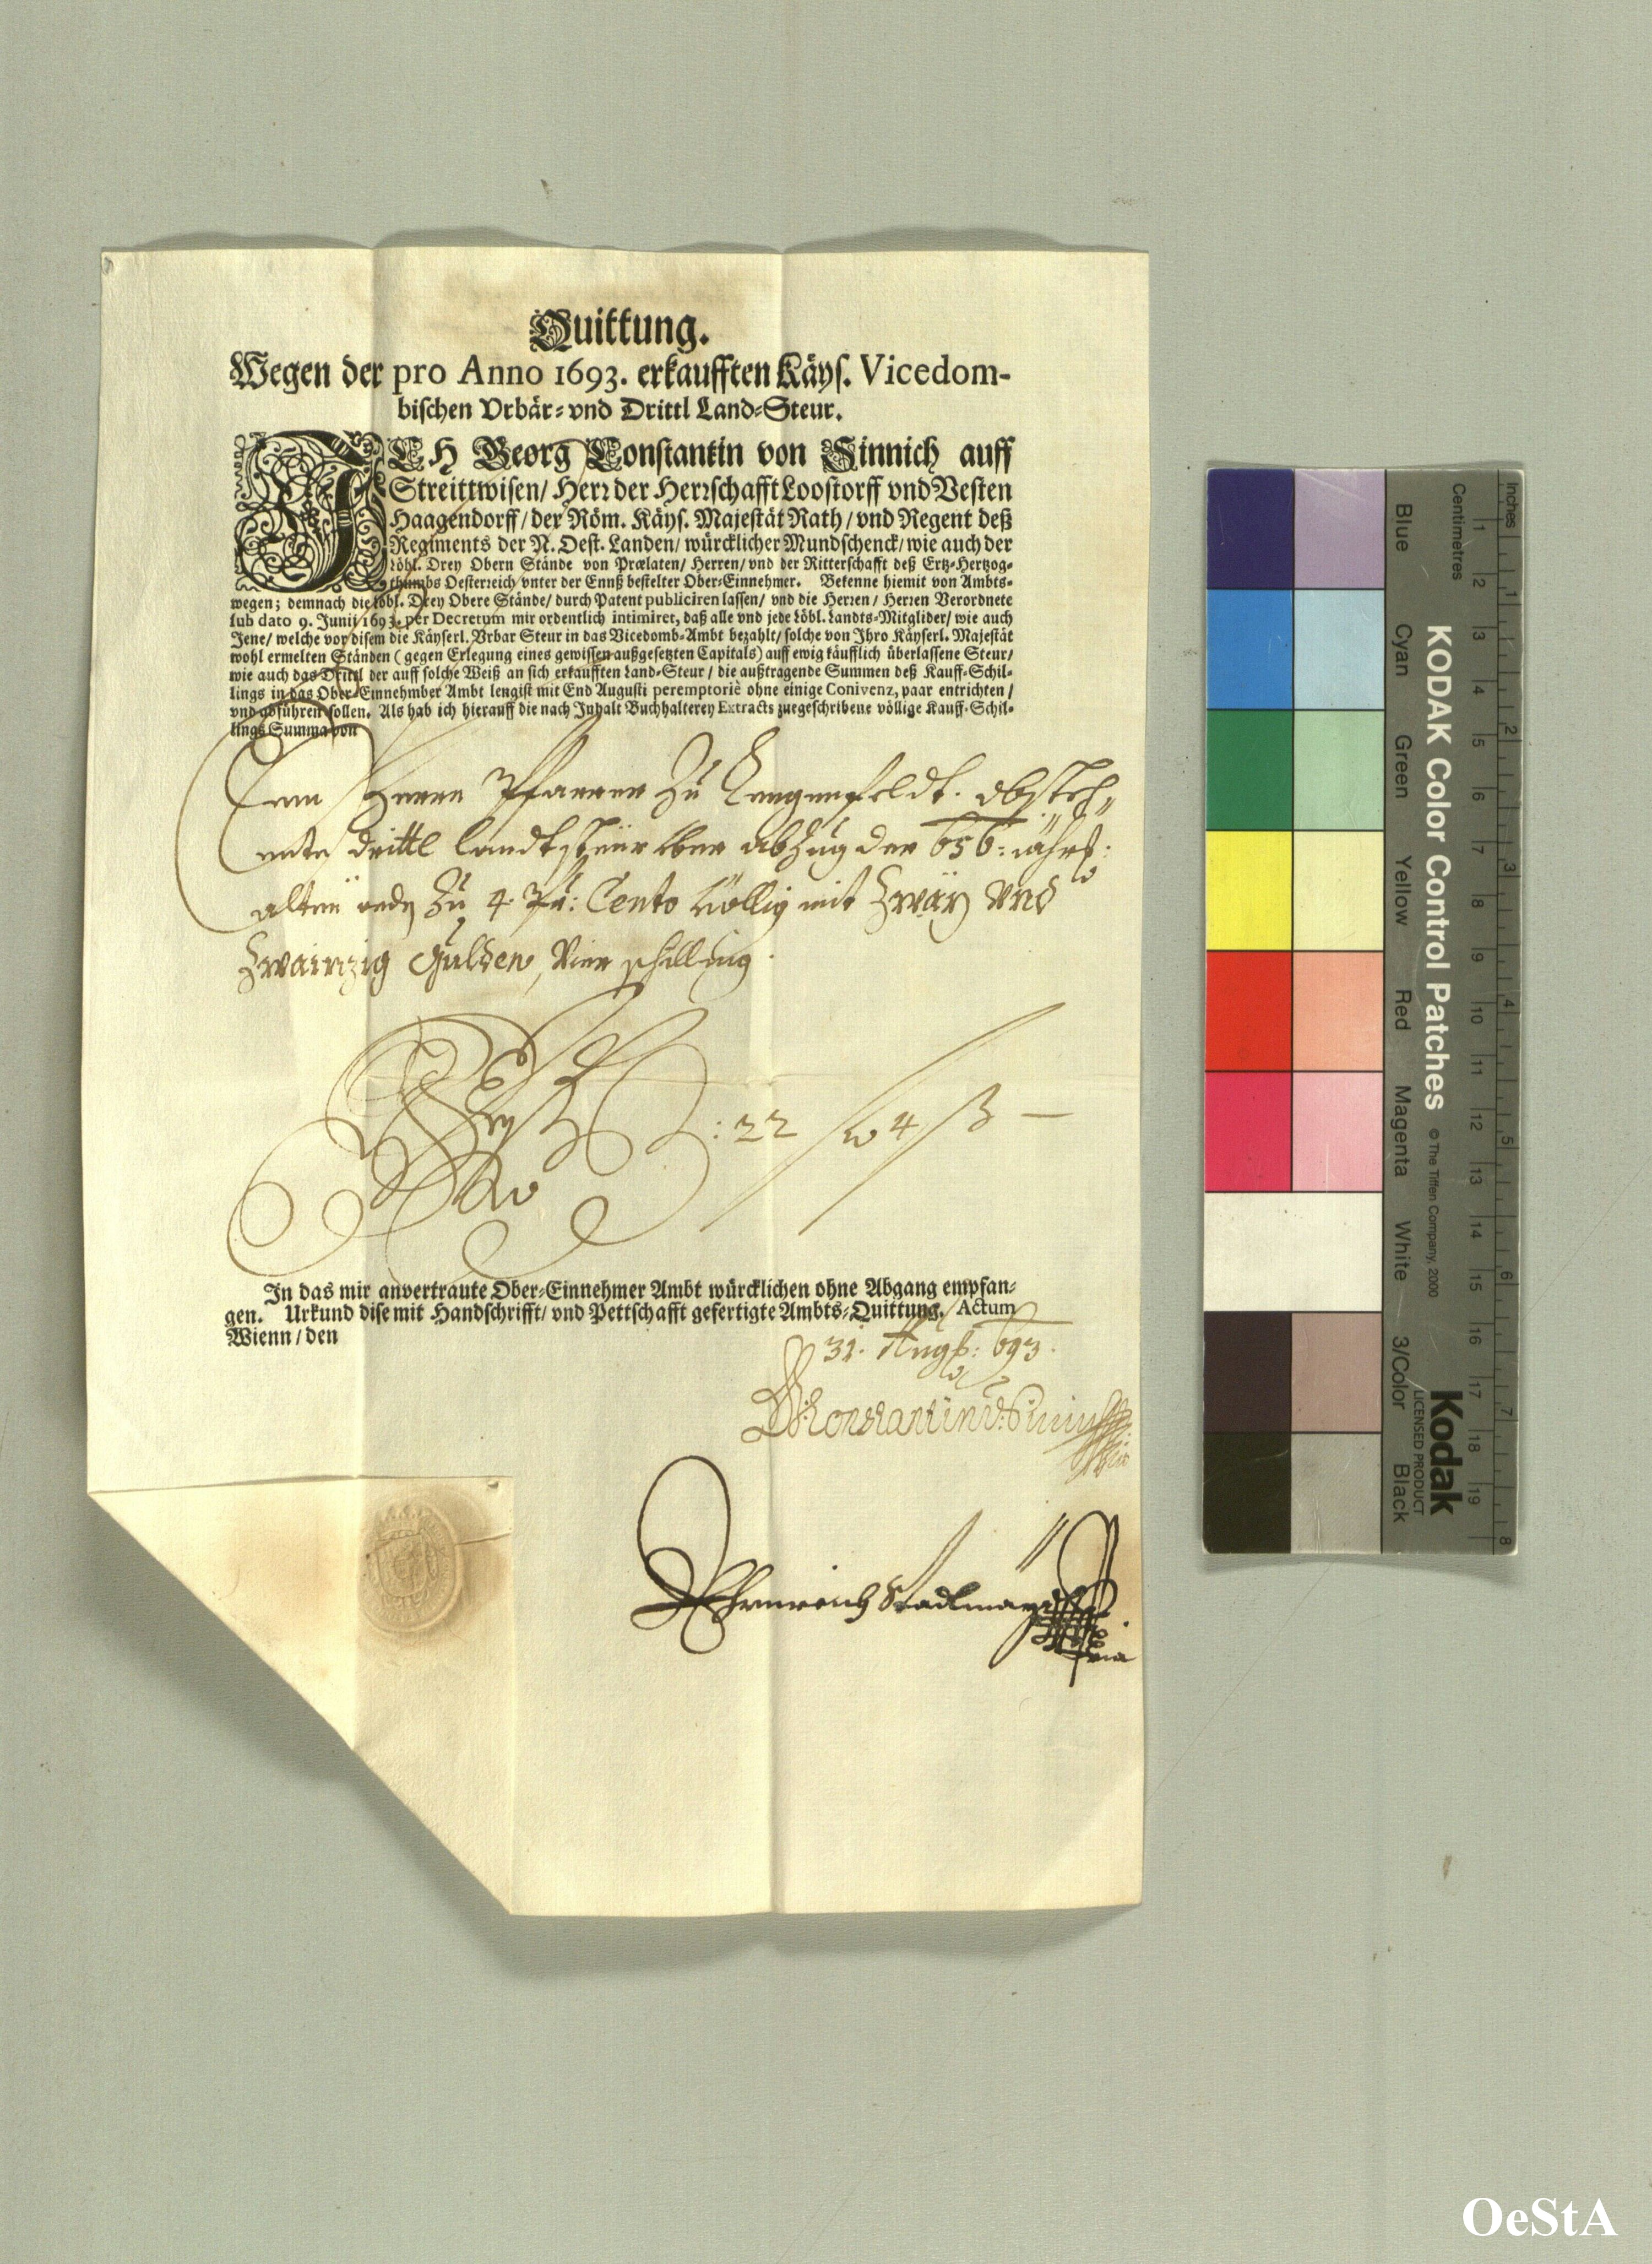 Quittung.
Wegen der pro Anno 1693. erkaufften Käys. Vicedom-
bischen Vrbär- vnd Drittl Land-Steur.
ICH Georg Constantin von Sinnich auff
Streittwisen/ Herr der Herrschafft Loostorff vnd Vesten
Haagendorff/ der Röm. Käys. Majestät Rath/ vnd Regent deß
Regiments der N. Oest. Landen/ würcklicher Mundschenck/ wie auch der
Löbl. Drey Obern Stände von Prælaten/ Herren/ vnd der Ritterschafft deß Ertz-Hertzog-
thumbs Oesterreich vnter der Ennß bestelter Ober-Einnehmer. Bekenne hiemit von Ambts-
wegen; demnach die Löbl. Drey Obere Stände/ durch Patent publiciren lassen/ vnd die Herren/ Herren Verordnete
sub dato 9. Junij 1693. per Decretum mir ordentlich intimiret, daß alle vnd jede Löbl. Landts-Mitglider/ wie auch
Jene/ welche vor disem die Käyserl. Vrbar Steur in das Vicedomb-Ambt bezahlt/ solche von Ihro Käyserl. Majestät
wohl ermelten Ständen (gegen Erlegung eines gewissen außgesetzten Capitals) auff ewig käufflich überlassene Steur/
wie auch das Drittl der auff solche Weiß an sich erkaufften Land-Steur/ die außtragende Summen deß Kauff-Schil-
lings in das Ober-Einnehmber Ambt lengist mit End Augusti peremptoriè ohne einige Conivenz, paar entrichten/
vnd abführen sollen. Als hab ich hierauff die nach Inhalt Buchhalterey Extracts zuegeschribene völlige Kauff-Schil-
lings Summa von
Herrn Pfarrer Zu Lengenfeldt. obsteh„
ente drittl landtsteür über abzug der 656: jährl:
alten Zu 4. Pr: Cento völlig mit Zwäy vnd
Zwainzig Gulden, Vier schilling.
: 22 f 4 ß —
In das mir anvertraute Ober-Einnehmer Ambt würcklichen ohne Abgang empfan-
gen. Urkund dise mit Handschrifft/ vnd Pettschafft gefertigte Ambts-Quittung. Actum
Wienn/ den
31. Augs: 693.
Constantin v. Sinnich
Ehrnreich Stadlmayr
KODAK Color Control Patches
© The Tiffen Company, 2000
Kodak
LICENSED PRODUCT
Inches
1 2 3 4 5 6 7 8
Centimetres
1 2 3 4 5 6 7 8 9 10 11 12 13 14 15 16 17 18 19
Blue Cyan Green Yellow Red Magenta White 3/Color Black
OeStA